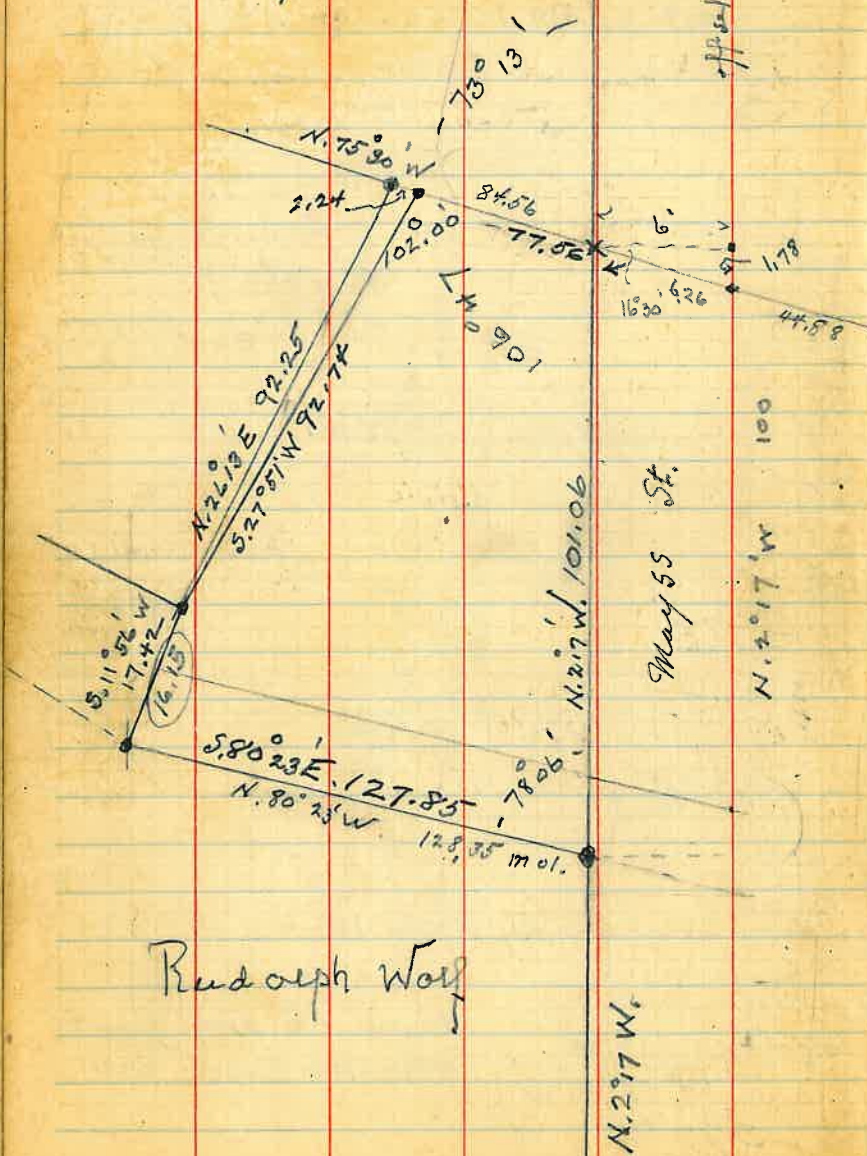 offset
73° 13'
N. 75° 30' W
2.24
84.56
77.56
6'
1.78
102.00
16°30'
6.26
44.58
106° 47'
N. 26°13' E 92.25
S. 27°51' W 92.74
100
N. 2°17' W. 101.06
May 55 St.
N. 2°17' W
S. 11° 56' W
17.42
16.15
S. 80° 23' E. 127.85
N. 80° 23' W
78° 06'
128.35 m ol.
Rudolph Wolf
N. 2°17 W.